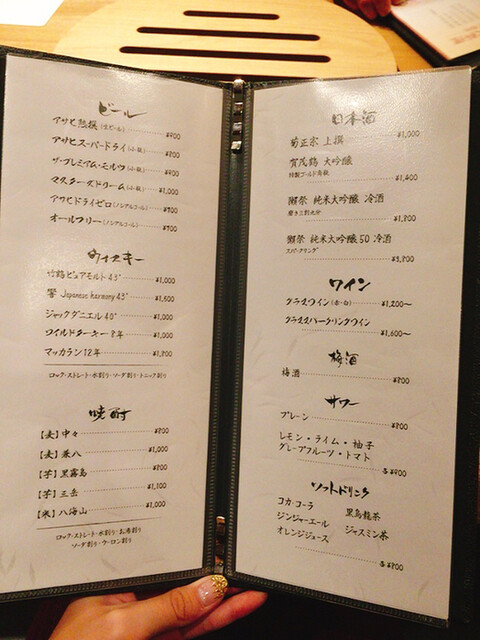 ビール
アサヒ熟撰(生ビール) ¥900
アサヒスーパードライ(小瓶) ¥800
ザ・プレミアム・モルツ(小瓶) ¥900
マスターズドリーム(小瓶) ¥1,000
アサヒドライゼロ(ノンアルコール) ¥700
オールフリー(ノンアルコール) ¥700
ウイスキー
竹鶴ピュアモルト 43° ¥1,000
響 Japanese harmony 43° ¥1,600
ジャックダニエル 40° ¥1,000
ワイルドターキー 8年 ¥1,000
マッカラン 12年 ¥1,200
ロック・ストレート・水割り・ソーダ割り・トニック割り
焼酎
【麦】中々 ¥800
【麦】兼八 ¥1,000
【芋】黒霧島 ¥800
【芋】三岳 ¥1,100
【米】八海山 ¥1,000
ロック・ストレート・水割り・お湯割り
ソーダ割り・ウーロン割り
日本酒
菊正宗 上撰 ¥1,000
賀茂鶴 大吟醸
特製ゴールド角瓶 ¥1,400
獺祭 純米大吟醸 冷酒
磨き三割九分 ¥1,800
獺祭 純米大吟醸 50 冷酒
スパークリング ¥3,800
ワイン
グラスワイン(赤・白) ¥1,200〜
グラススパークリングワイン ¥1,600〜
梅酒
梅酒 ¥800
サワー
プレーン ¥800
レモン・ライム・柚子
グレープフルーツ・トマト
各¥900
ソフトドリンク
コカ・コーラ 黒烏龍茶
ジンジャーエール ジャスミン茶
オレンジジュース
各¥800